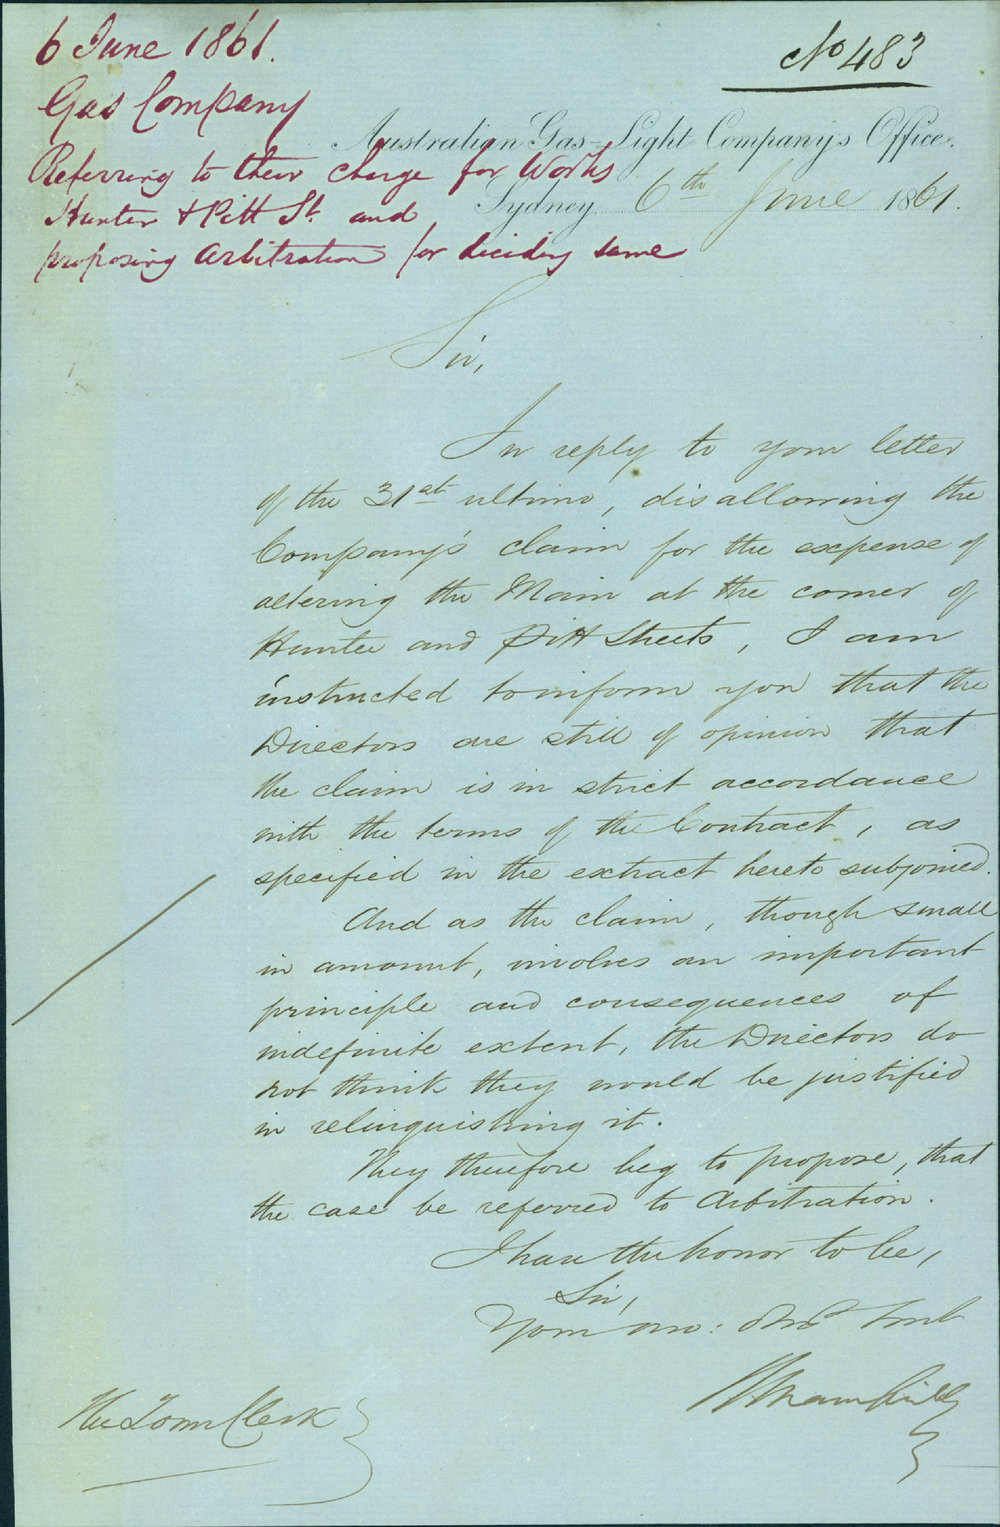 6 June 1861.
Gas Company
Referring to their charge for Works
Hunter & Pitt St. and
proposing Arbitration for deciding same
No 483
Australian Gas-Light Company's Office.
Sydney 6th June 1861.
Sir,
In reply to your letter
of the 31st ultimo, disallowing the
Company's claim for the expense of
altering the Main at the corner of
Hunter and Pitt Streets, I am
instructed to inform you that the
Directors are still of opinion that
the claim is in strict accordance
with the terms of the Contract, as
specified in the extract hereto subjoined.
And as the claim, though small
in amount, involves an important
principle and consequences of
indefinite extent, the Directors do
not think they would be justified
in relinquishing it.
They therefore beg to propose, that
the case be referred to Arbitration.
I have the honor to be,
Sir,
Your mo: Obdt Servt
The Town Clerk